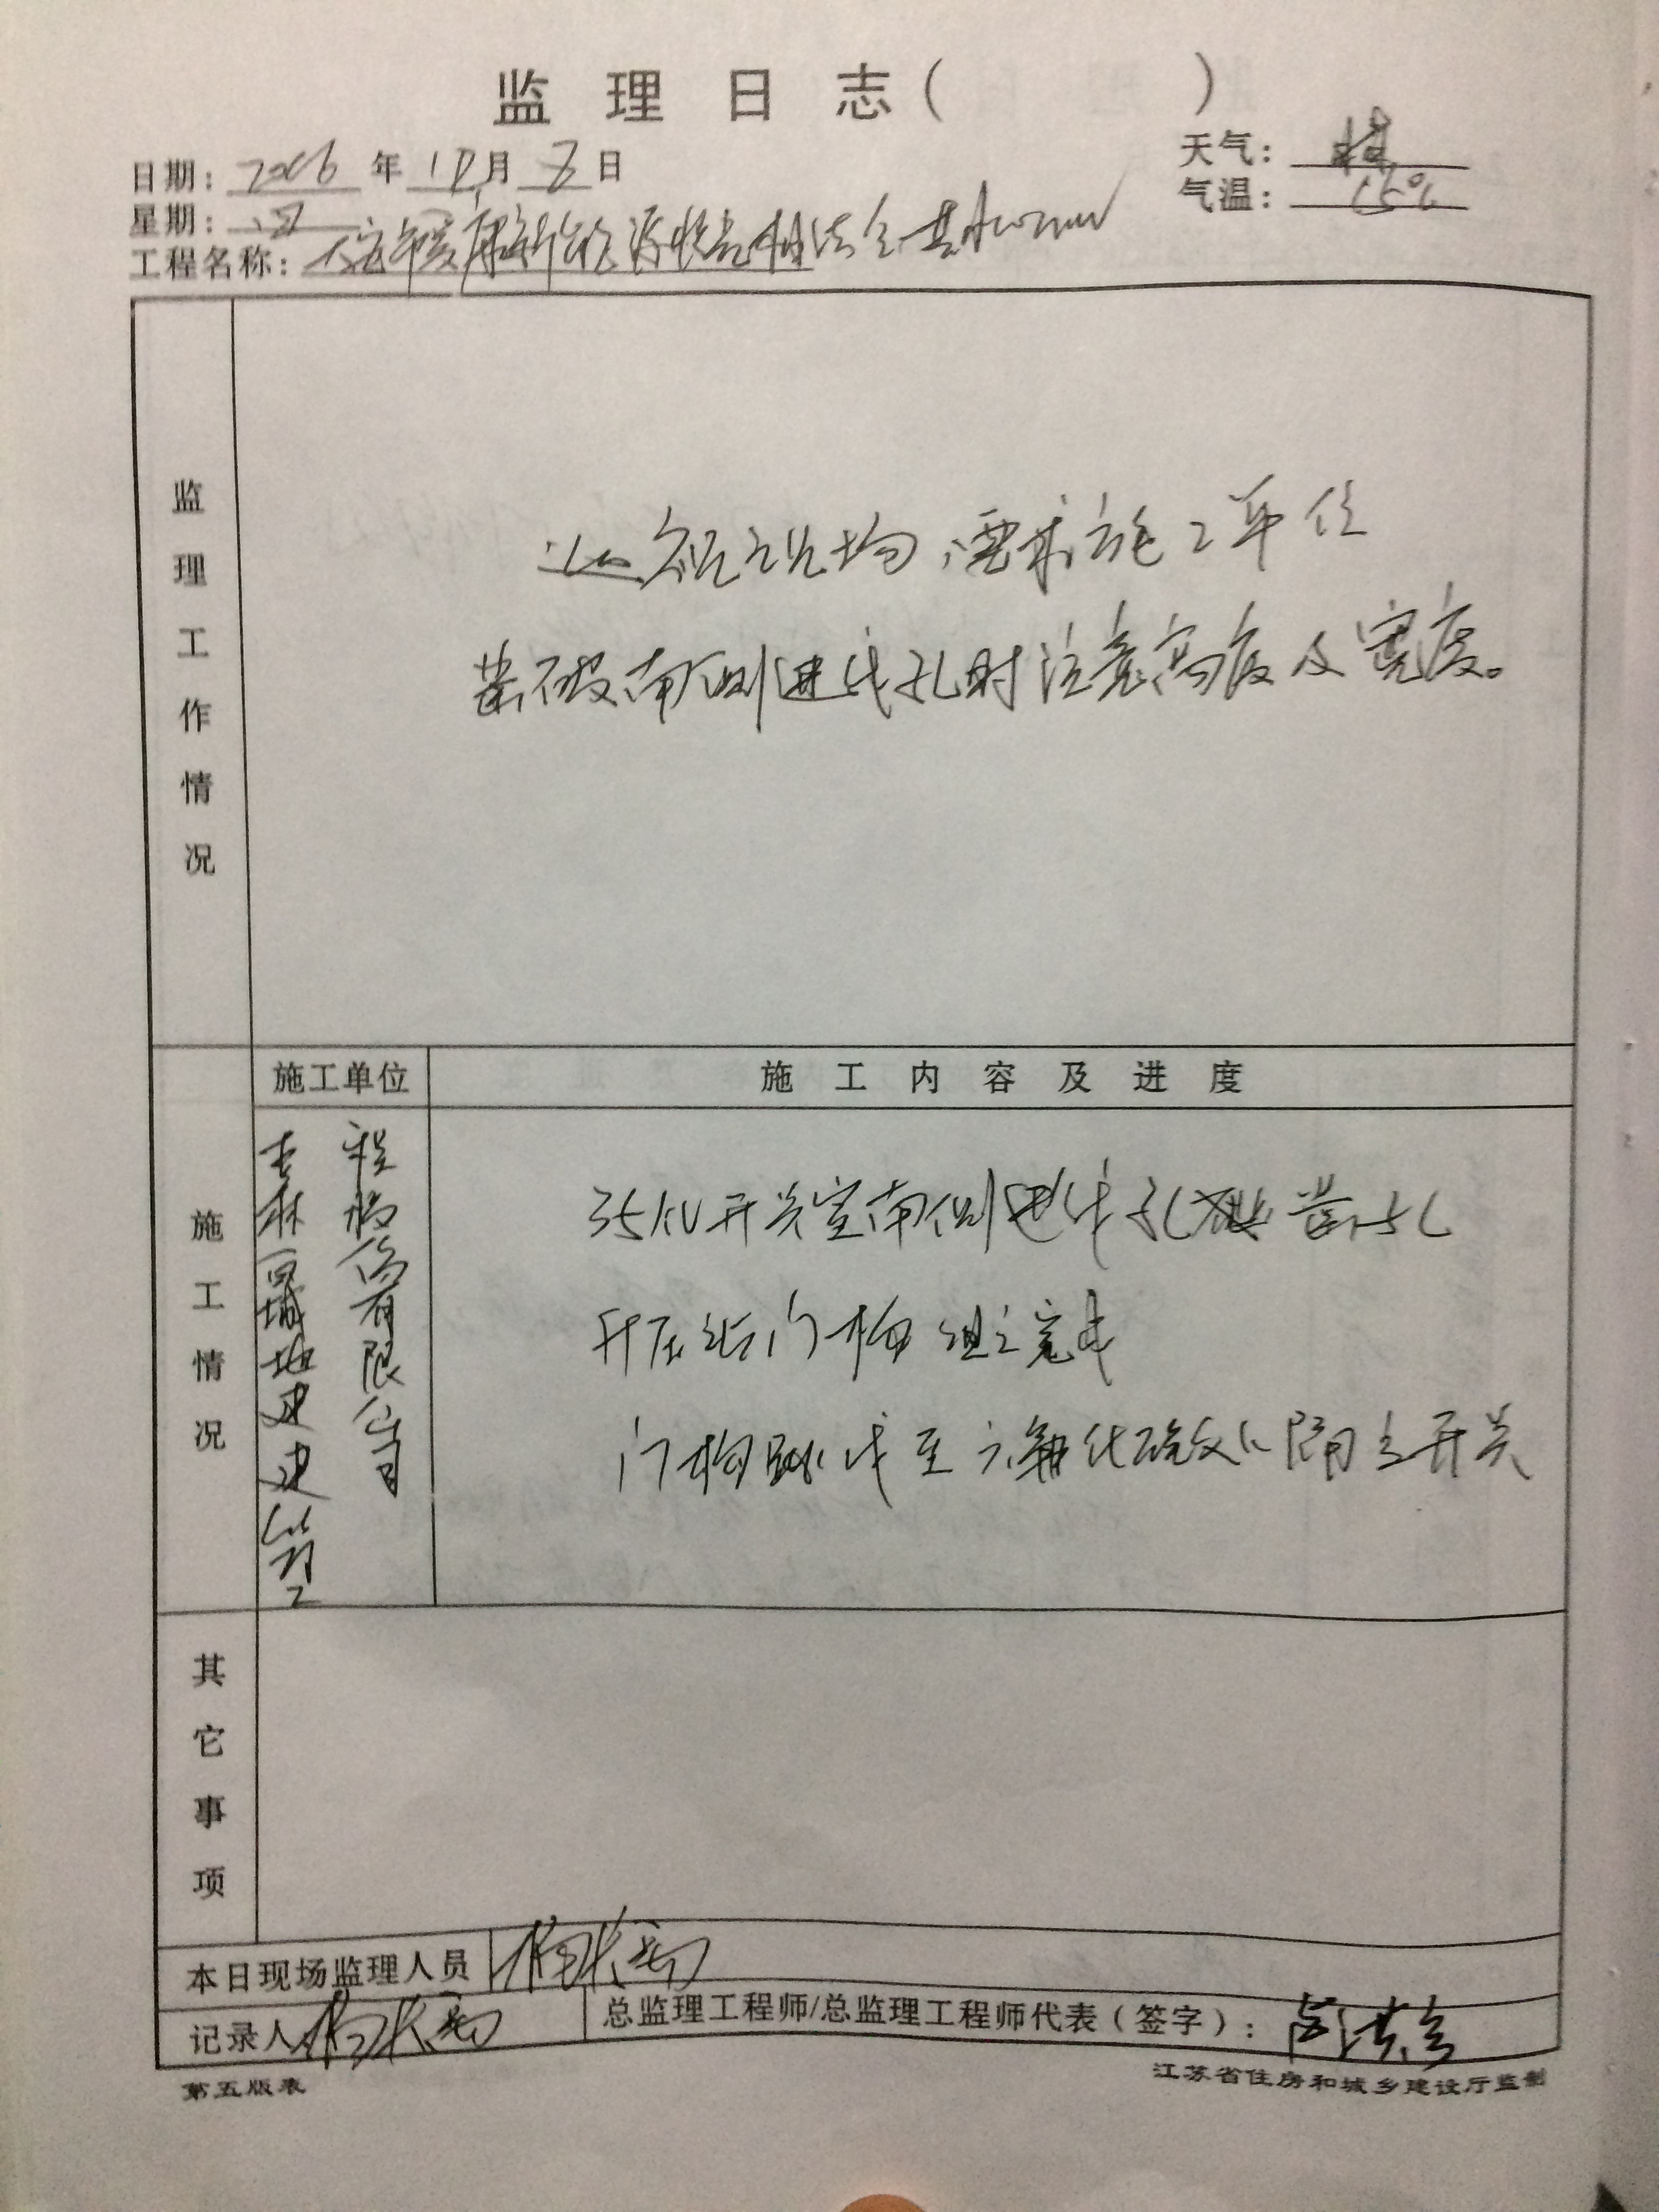 监理日志（ ）
日期： 年 月 8 日
天气：晴
星期：四
气温：15℃
工程名称：
监理工作情况
巡视现场，要求施工单位
凿破南侧进线孔时注意高度及宽度。
施工情况
施工单位
施工内容及进度
吉林 建筑工
程 有限公司
35KV开关室南侧进线孔 凿孔
升压站门构组立完成
门构跳线至六氟化硫 隔离开关
其它事项
本日现场监理人员
记录人
总监理工程师/总监理工程师代表（签字）：
第五版表
江苏省住房和城乡建设厅监制